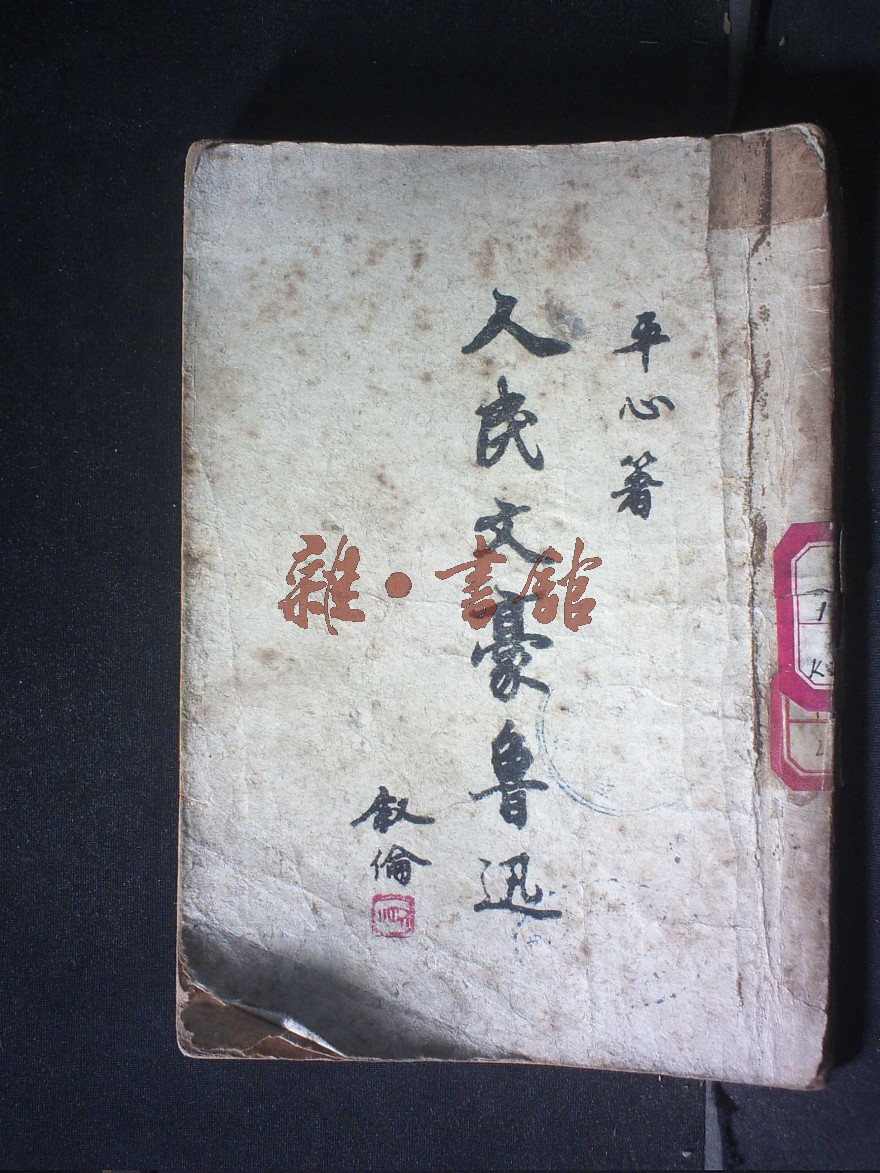 平心著
人民文豪魯迅
叙倫
雜·書舘
1
K